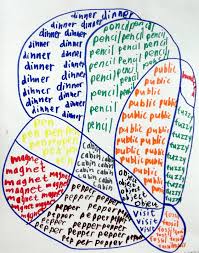 dinner dinner
dinner dinner
dinner dinner
dinner dinner
dinner dinner dinner
dinner dinner
dinner dinner
dinner dinner
pencil pencil
pencil pencil pencil
pencil pencil pencil
pencil pencil
pencil pencil
pencil
pencil
pencil
public
public
public public
public public
public public
public public
public
fuzzy
fuzzy
fuzzy
fuzzy
fuzzy
pen pen pen
pen pen pen
pen pen
magnet
magnet
magnet
magnet magnet
magnet
cabin
cabin cabin
cabin cabin
cabin cabin
object
object
object
object
pepper pepper
pepper pepper pepper
pepper pepper pepper
pepper pepper pepper
pepper pepper
visit
visit
visit
fossil
fossil
fossil